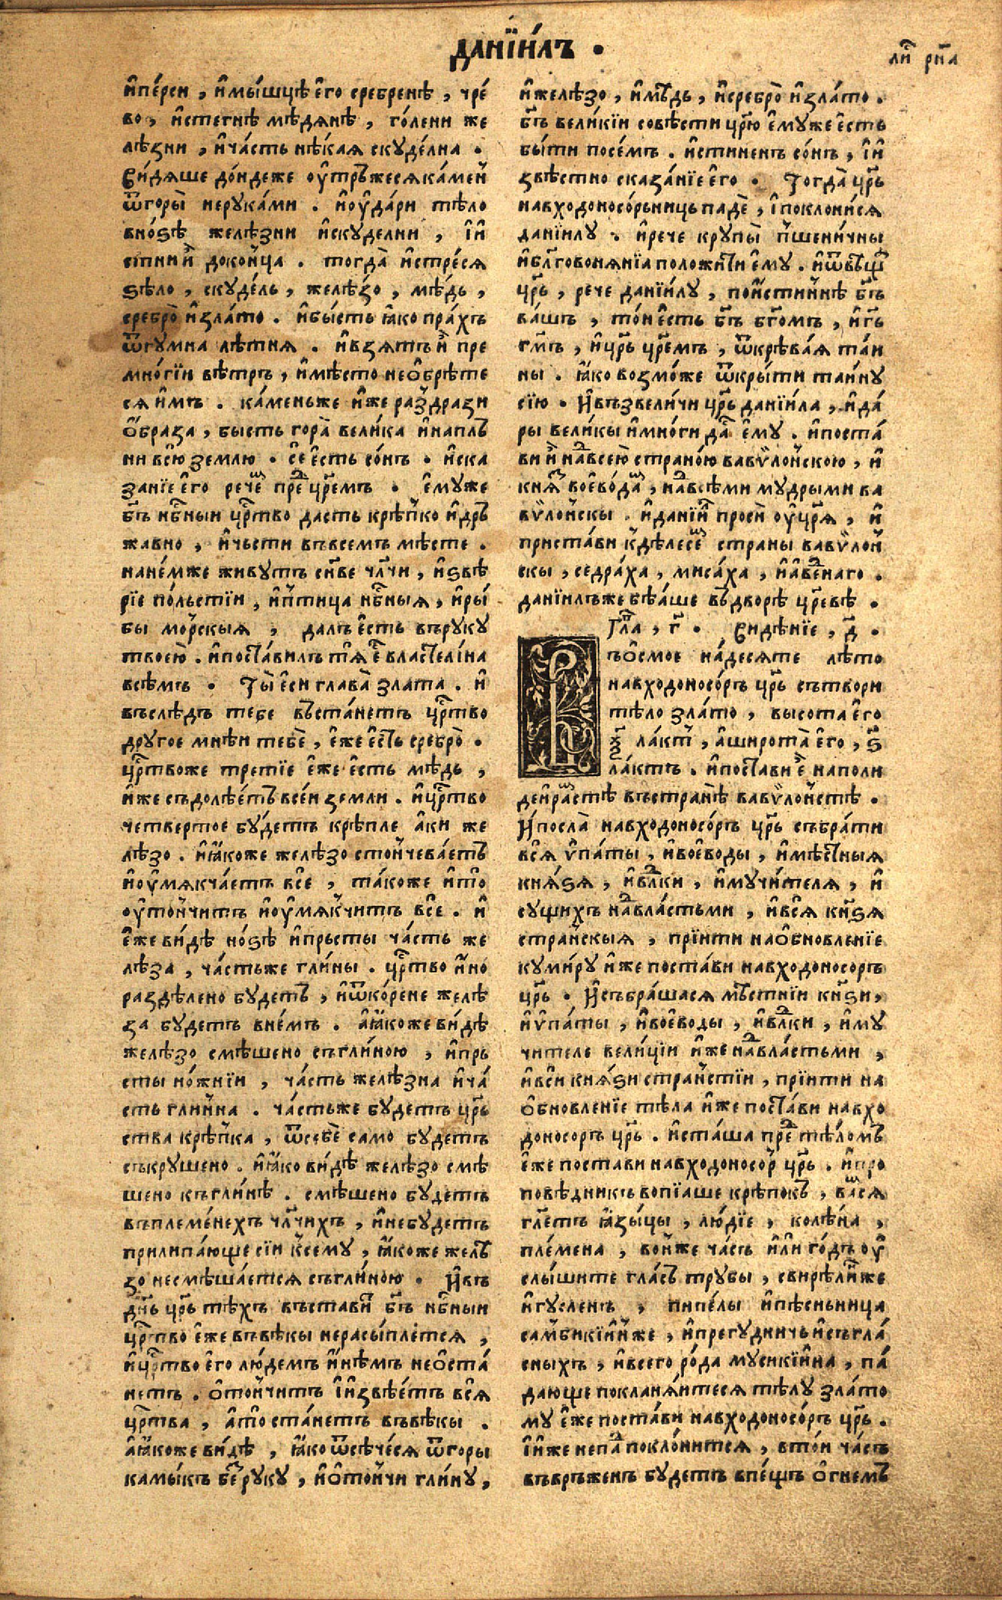 данїи́лъ .
ли҇ рн҃а
и҆пе́рси , и҆мы́шцѣ е҆го̀ сребренѣ , чре́
во , и҆стегнѣ мѣ́дянѣ , го́лени же
лѣ́зни , и҆ча́сть нѣ́кая скуде́лна .
Ви́дяше до́ндеже оу҆тръ́жеся ка́мен̾
ѿгоры̀ нерука́ми . и҆оу҆да́ри тѣ́ло
вно́ѕѣ желѣ́зни и҆скуделни , і҆и
спни и҆̀ докон̾ца . тогда̀ и҆стре́ся
ѕѣ́ло , скуде́ль , желѣ́зо , мѣ́дь ,
сребро̀ и҆зла́то . и҆бы́сть ꙗ҆ко пра́хъ
ѿгумна лѣ́тня . и҆взятъ и҆̀ пре
мно́гїи вѣ́тръ , и҆мѣ́сто неѡ҆брѣ́те
ся и҆́мъ . ка́меньже и҆́же раздрази
ѡ҆́браза , бысть гора̀ вели́ка и҆напль
ни всю̀ зе́млю . сѐ е҆сть со́нъ . и҆ска
за́нїе е҆го̀ рече́м пред цр҃емъ . е҆му́же
бг҃ъ нб҃ный цр҇тво дасть крѣ́пко и҆дръ
жавно , и҆чьсти въвсемъ мѣ́сте .
нане́мже живу́тъ сн҃ве чл҃чи , и҆ѕвѣ́
рїе по́льстїи , и҆пти́ца нб҃ныя , и҆ры́
бы мо́рскыя , далъ е҆сть вруку
твоею̀ . и҆поста́вилъ тя е҆с̀ власте́лина
всѣ́мъ . Ты̀ е҆сѝ глава̀ злата . и҆
въслѣ́дъ тебе въста́нетъ цр҇тво
другое мнѣи тебѐ , е҆́же е҆́сть сребро̀ .
цр҇твоже третїе е҆́же е҆сть мѣ́дь ,
и҆́же съдолѣ́етъ все́й земли . и҆цр҇тво
четвертое бу́детъ крѣпле а҆́ки же
лѣ́зо . и҆ꙗ҆́коже желѣ́зо стонче́ваетъ
и҆оу҆мякча́етъ всѐ , та́коже и҆то̀
оу҆тон̾читъ и҆оу҆мякчитъ всѐ . и҆
е҆́же ви́дѣ но́ѕѣ и҆прьсты часть же
лѣза , ча́стьже гли́ны . цр҇тво и҆́но
раздѣ́лено бу́детъ , и҆ѿко́рене желѣ́
за бу́детъ внѐмъ . а҆ꙗ҆коже ви́дѣ
желѣ́зо смѣ́шено съгли́ною , и҆прь
сты но́жнїи , ча́сть желѣ́зна и҆ча́
сть глин̾на . ча́стьже бу́детъ цр҇ь
ства крѣ́пка , ѿсебѐ само бу́детъ
съкрушено . и҆ꙗ҆ко ви́дѣ желѣ́зо смѣ
шено къгли́нѣ . смѣ́шено бу́детъ
въплеме́нехъ чл҃чихъ , и҆небу́детъ
прилипа́юще сїи ксему , ꙗ҆́коже желѣ́
зо несмѣша́ется съгли́ною . И҆въ
дн҃ь цр҃ь тѣхъ въстави́т бг҃ъ нб҃ный
цр҇тво е҆́же въвѣ́кы нерасы́плется ,
и҆цр҇тво е҆го̀ лю́демъ и҆́нѣмъ неѡ҆ста́
нетъ . ѡ҆тон̾читъ і҆и҆звѣ́етъ вся̀
цр҇тва , а҆то̀ станетъ въвѣ́кы .
а҆ꙗ҆́коже ви́дѣ , ꙗ҆́ко ѿсѣче́ся ѿгоры
камыкъ без̾ руку , и҆ѡ҆тон̾чи гли́ну ,
и҆желѣ́зо , и҆мѣ́дь , и҆сребро̀ и҆зла́то .
бг҃ъ вели́кїи совѣ́сти цр҃ю е҆му́же е҆́сть
бы́ти посе́мъ . и҆стиненъ со́нъ , і҆и҆
звѣ́стно сказа́нїе е҆го . Тогда̀ цр҃ь
навходоносо́рьниць падѐ , і҆поклони́ся
данїилу . и҆рече крупы̀ пшени́чны
и҆бл҃говоня́нїа положи́ти е҆му . и҆ѿвѣ́щав
цр҃ь , рече данїи́лу , пои҆стин̾нѣ бг҃ъ
ва́шъ , то́й е҆сть бг҃ъ бг҃омъ , и҆гь҃
гм҃ъ , и҆цр҃ь цр҃емъ , ѿкрыва́я та́и
ны . ꙗ҆ко возмо́же ѿкры́ти таи́ну
сїю . И҆възвели́чи цр҃ь данїи́ла , и҆да́
ры вели́кы и҆мно́ги да́ст е҆му . и҆поста́
ви и҆̀ надвсею̀ страно́ю вавѷло́нскою , и҆
кня́ѕ воево́дам , надвсѣми му́дрыми ва
вѷло́нскы . и҆данїил просѝ оу҆цр҃я , и҆
приста́ви кдѣлесе́м страны вавѷло́н
скы , седра́ха , миса́ха , и҆а҆вде́наго .
данїилъже бѣа́ше въдворѣ̀ цр҃евѣ .
Гл҃а , г҃ . видѣ́нїе , д҃ .
Въѡ҆смое на́десяте лѣ́то
навходоносо́ръ цр҃ь сътвори
тѣ́ло зла́то , высота е҆го
ѯ҃ лакт , а҆широта̀ е҆го , ѕ҃
ла́ктъ . и҆поста́ви е҆̀ наполи
деи҆растѣ̀ въстранѣ̀ вавѷло́нстѣ .
И҆посла̀ навходоносо́ръ цр҃ь събра́ти
вся̀ ѷ҆па́ты , и҆вое́воды , и҆мѣ́стныя
кня́ѕя , и҆вл҃ки , и҆мучи́теля , и҆
сущихъ надвла́стьми , и҆вся̀ кнѕя
стра́нскыя , прїи́ти наѡ҆бновле́нїе
куми́ру и҆́же поста́ви навходоносо́ръ
цр҃ь . И҆събра́шася мѣ́стнїи кн҃ѕи ,
и҆ѷ҆па́ты , и҆вое́воды , и҆вл҃ки , и҆му
чителе вели́цїи и҆́же надвла́стьми ,
и҆вси̏ кня́ѕи стра́нстїи , прїи́ти на
ѡ҆бновле́нїе тѣ́ла и҆́же поста́ви навхо
доносоръ цр҃ь . и҆ста́ша пред тѣ́ломъ
е҆́же поста́ви навходоносо́р цр҃ь . и҆про
повѣ́дникъ вопїа́ше крѣ́покъ , ва́мся
гл҃етъ ꙗ҆зы́цы , лю́дїе , колѣ́на ,
пле́мена , во́н̾же ча́съ и҆́ли го́дъ оу҆
слы́шите гла́съ трубы , свирѣ́лиже
и҆гу́сленъ , пипе́лы и҆пѣ́сньница
самбикїи́же , и҆прегудничь и҆съгла́
сныхъ , и҆всего ро́да мусикїи́на , па́
дающе покланя́итеся тѣ́лу злато
му е҆́же поста́ви навходоносо́ръ цр҃ь .
І҆и҆́же непад поклони́тся , втой ча́съ
въвръ́женъ бу́детъ впе́щь ѡ҆гнемъ